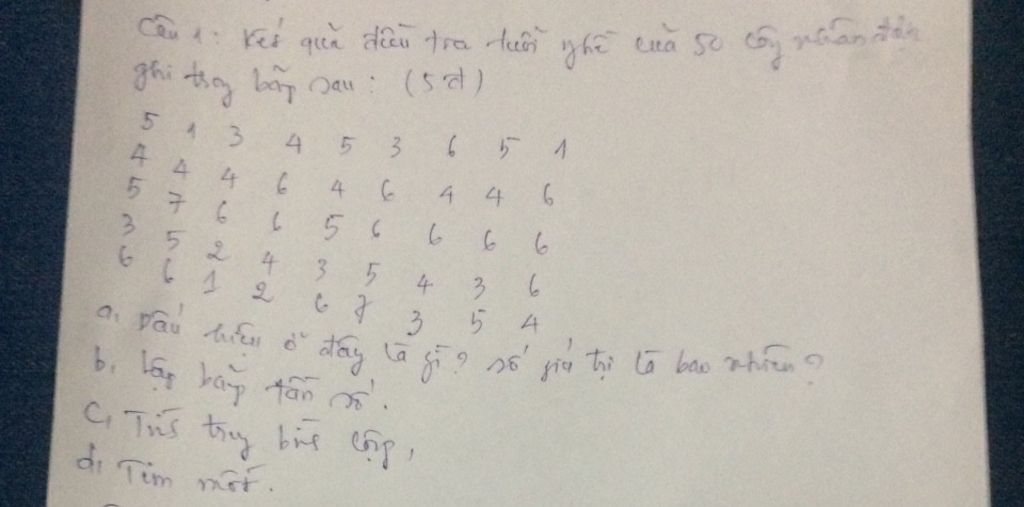 Câu 1: Kết quả điều tra tuổi nghề của 50 công nhân được
ghi trong bảng sau: (5đ)
5 1 3 4 5 3 6 5 1
4 4 4 6 4 6 4 4 6
5 7 6 6 5 6 6 6 6
3 5 2 4 3 5 4 3 6
6 6 1 2 6 7 3 5 4
a, Dấu hiệu ở đây là gì? số giá trị là bao nhiêu?
b, Lập bảng tần số.
c, Tính trung bình cộng,
d, Tìm mốt.